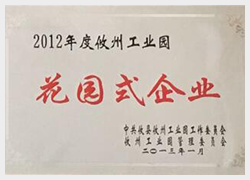 2012年度攸州工业园
花园式企业
中共攸县攸州工业园工作委员会
攸州工业园管理委员会
二〇一三年一月